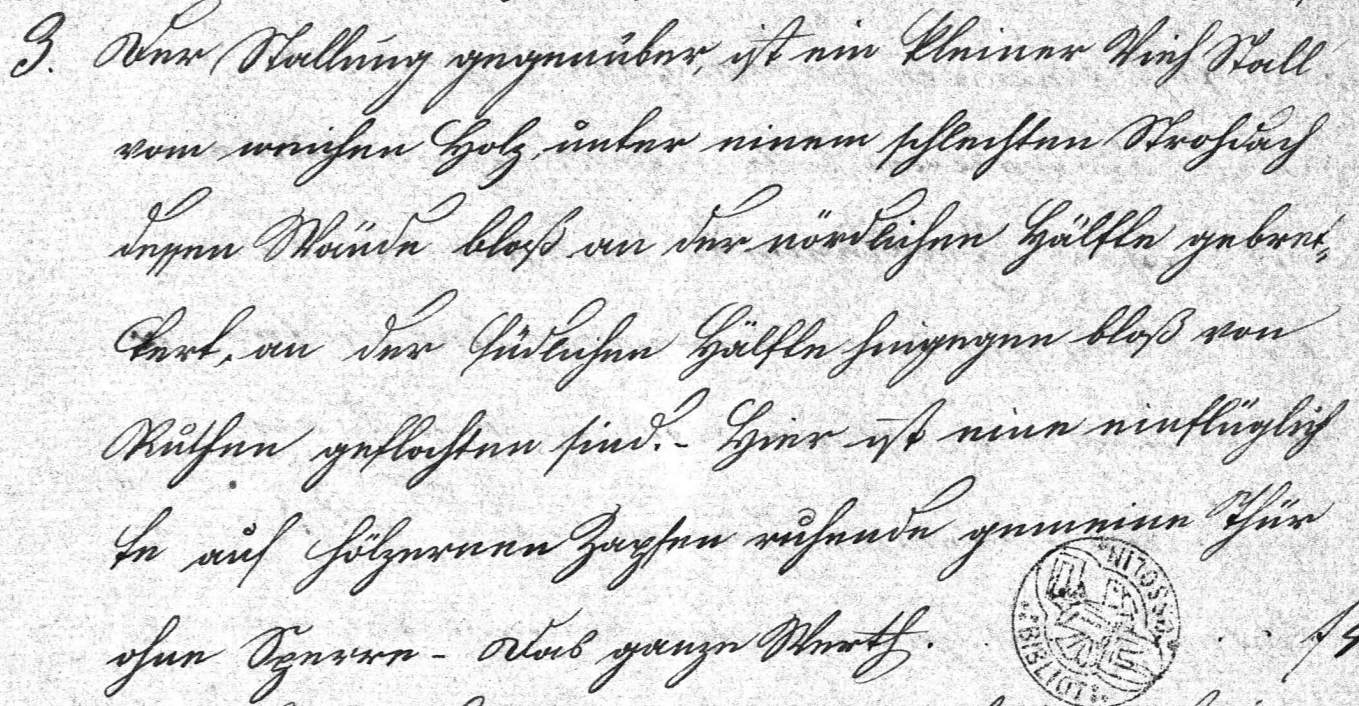 3. Der Stallung gegenüber, ist ein kleiner Vieh Stall
vom weichen Holz, unter einem schlechten Strohdach
dessen Wände bloß an der nördlichen Hälfte gebret„
tert, an der südlichen Hälfte hingegen bloß von
Ruthen geflochten sind. - Hier ist eine einflüglich
te auf hölzernen Zapfen ruhende gemeine Thür
ohne Sperre - Das ganze Werth.
BIBLIOT. OSSOLIN.